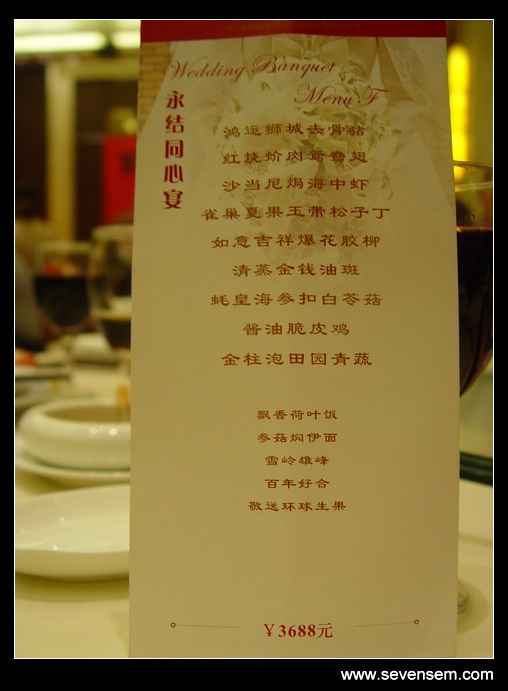 Wedding Banquet
Menu F
永结同心宴
鸿运狮城去骨猪
红烧蚧肉鸳鸯翅
沙当尼焗海中虾
雀巢夏果玉带松子丁
如意吉祥爆花胶柳
清蒸金钱油斑
蚝皇海参扣白苓菇
酱油脆皮鸡
金柱泡田园青蔬
飘香荷叶饭
参菇焖伊面
雪岭雄峰
百年好合
敬送环球生果
￥3688元
www.sevensem.com